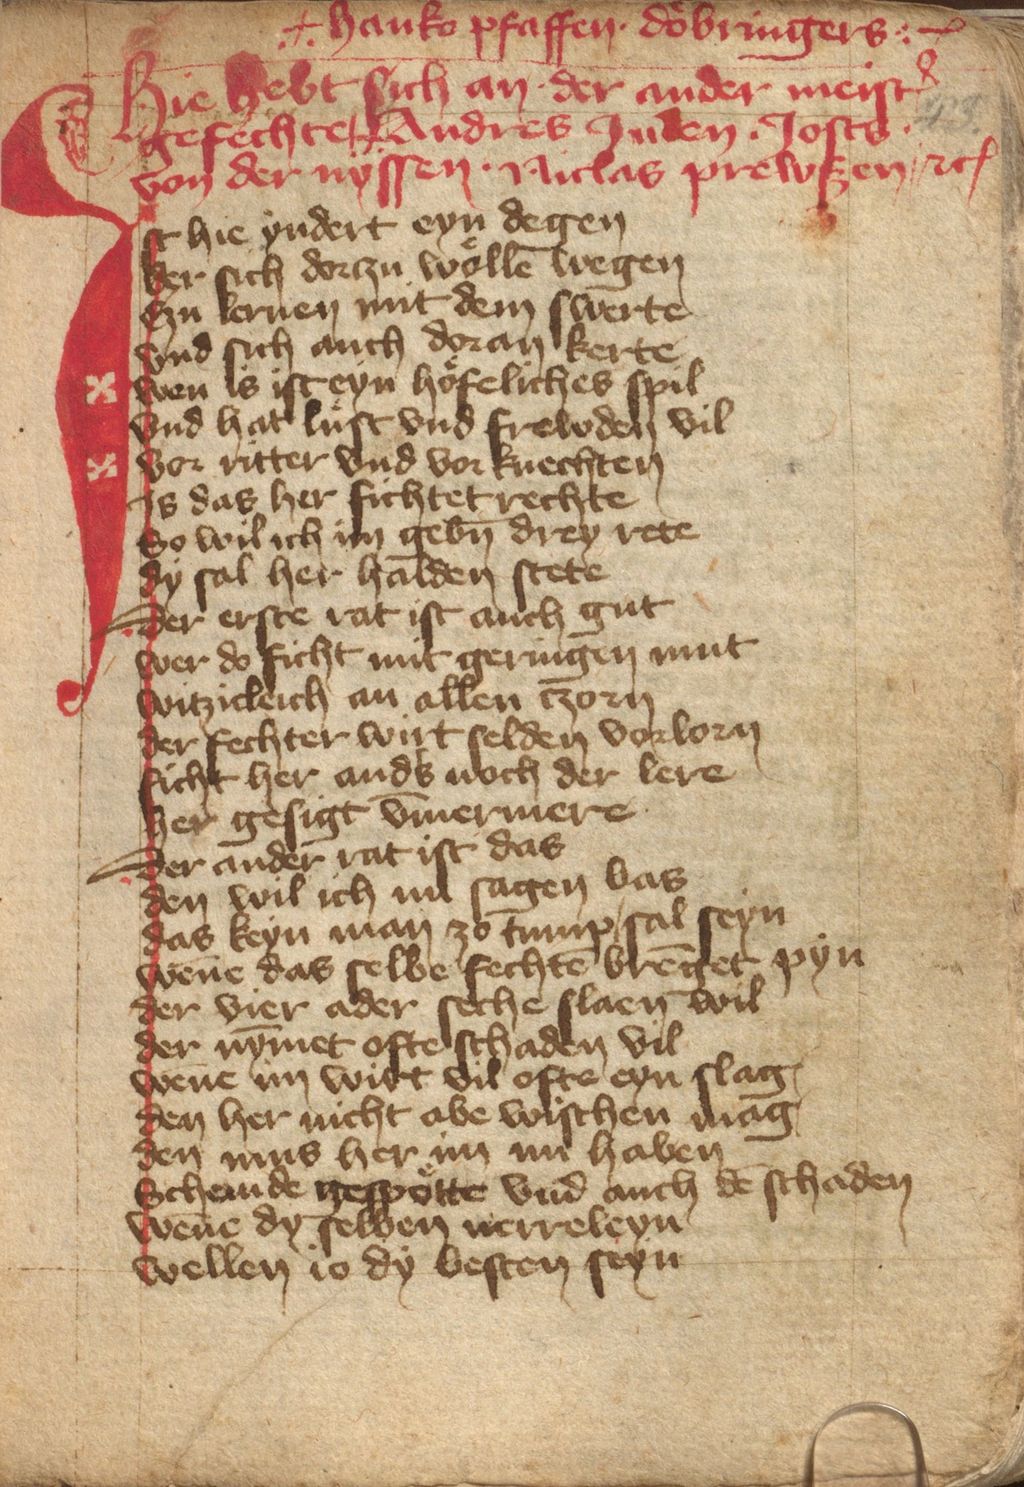 .+. hanko pfaffen · döbringers :~
Hie hebt sich an · der ander meister
gefechte / Andres Juden · Josts ·
von der nyssen · Niclas prewszen / rc
43
Ist hie yndert eyn degen
der sich dorczu wöllē wegen
Czu lernen mit dem swerte
vnd sich auch doran kerte
wen is ist eyn höfeliches spil
vnd hat lust vnd frewden vil
vor ritter vnd vor knechten
Is das her fichtet rechte
So wil ich im gebn̄ drey rete
dy sal her halden stete
Der erste rat ist auch gut
wer do ficht mit geringen mut
witzicleich an allen czorn
der fechter wirt selden vorlorn
ficht her anders noch der lere
her gesigt v̄mermere
Der ander rat ist das
den wil ich im sagen bas
das keyn man zo tump sal seyn
wēne das selbe fechtē brēget pyn
der vier ader sechse slaen wil
der nȳmet ofte schaden vil
wēne im wirt vil ofte eyn slag
den her nicht abe wischen mag
den mus her im nu haben
Schemde gespötte vnd auch dē schaden
wēne dy selben nerreleyn
wellen io dy besten seyn